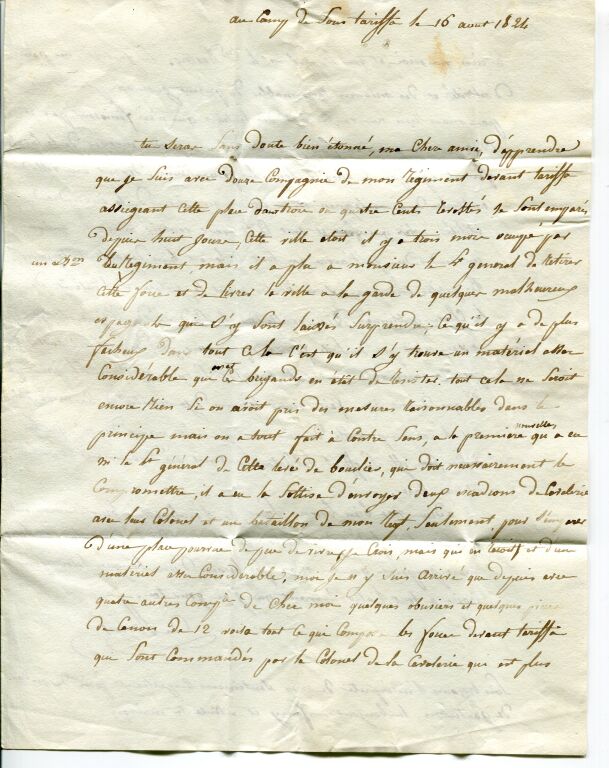 au Camp de Sous tariffa le 16 aout 1824
tu seras Sans doute bien étonné, ma Chere amie, d'apprendre
que je Suis avec douze Compagnie de mon Régiment devant tariffa
assiegeant Cette place dans ou quatre Cents revoltés Se Sont emparés
depuis huit Jours, Cette ville etoit il y a trois mois occupé par
un Bon
du Régiment mais il a plu a monsieur le Lt general de retirer
Cette force et de livrer la ville a la garde de quelques malheureux
espagnols qui S'y Sont laissés Surprendre; Ce qu'il y a de plus
facheux dans tout Cela C'est qu'il S'y trouve un matériel assez
Considerable qui met Ces brigands en état de resister. tout cela ne Seroit
encore Rien Si on avoit pris des mesures Raisonnables dans le
principe mais on a tout fait à Contre Sens, a la premiere nouvelles qu'a eu
le Lt général de Cette de boucliers, qui doit necessairement le
Compromettre, il a eu la Sottise d'envoyer deux escadrons de Cavalerie
avec leur Colonel et un bataillon de mon Regt. Seulement, pour
d'une place pourvue de mais qui en et d'un
matériel assez Considerable, moi Je n'y Suis arrivé que depuis avec
quatre autres Compies de Chez moi quelques obusiers et quelques pieces
de Canons de 12 voila tout Ce qui Compose les force devant tariffa
qui Sont Commandés par le Colonel de la Cavalerie qui est plus